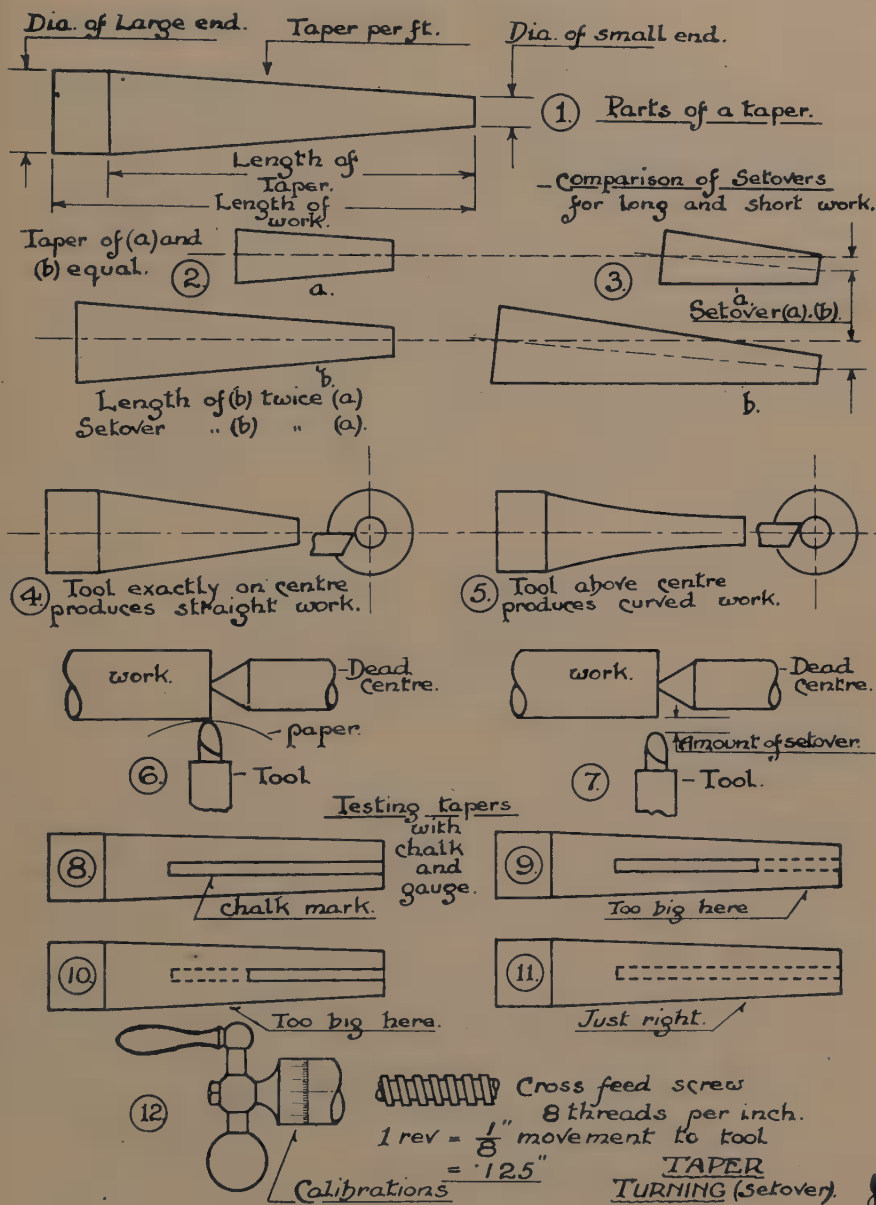 Dia. of Large end.
Taper per ft.
Dia. of small end.
1. Parts of a taper.
Length of
Taper.
Length of
work.
- Comparison of Setovers
for long and short work.
Taper of (a) and
(b) equal.
2.
a.
3.
a.
Setover (a). (b).
b.
b.
Length of (b) twice (a)
Setover .. (b) " (a).
4. Tool exactly on centre
produces straight work.
5. Tool above centre
produces curved work.
work.
Dead
centre.
paper.
6.
Tool
work.
Dead
centre.
Amount of setover.
7.
Tool.
Testing tapers
with
chalk
and
gauge.
8.
chalk mark.
9.
Too big here
10.
Too big here.
11.
Just right.
12.
Calibrations
Cross feed screw
8 threads per inch.
1 rev = 1/8" movement to tool
= .125"
TAPER
TURNING (setover).